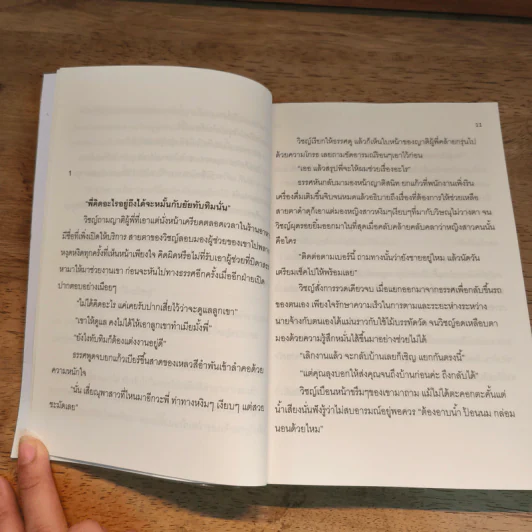 1
"พี่คิดอะไรอยู่ถึงได้จะหมั้นกับยัยทับทิมนั่น"
วิชญ์ถามญาติผู้พี่ที่เอาแต่นั่งหน้าเครียดตลอดเวลาในร้านอาหาร
มีชื่อที่เพิ่งเปิดให้บริการ สายตาของวิชญ์สอบมองผู้ช่วยของเขาไปพลาง
หงุดหงิดทุกครั้งที่เห็นหน้าเพียงใจ คิดผิดหรือไม่ที่รับเอาผู้ช่วยที่บิดา
หามาให้มาช่วยงานเขา ก่อนจะหันไปทางธรรศอีกครั้งเมื่ออีกฝ่ายเปิด
ปากตอบอย่างเนือยๆ
"ไม่ได้คิดอะไร แค่เคยรับปากเสี่ยไว้ว่าจะดูแลลูกเขา"
"เขาให้ดูแล คงไม่ได้ให้เอาลูกเขาทำเมียมั้งพี่"
"ยังไงทับทิมก็ต้องแต่งงานอยู่ดี"
ธรรศพูดจบยกแก้วเบียร์ขึ้นสาดของเหลวสีอำพันเข้าลำคอด้วย
ความหนักใจ
"นั่น เสี่ยณุพาสาวที่ไหนมาอีกวะพี่ ท่าทางหงิมๆ เงียบๆ แต่สวย
ชะมัดเลย"
11
วิชญ์เรียกให้ธรรศดู แล้วก็เห็นใบหน้าของญาติผู้พี่คล้ายกรุ่นไป
ด้วยความโกรธ เลยถามขัดอารมณ์ร้อนๆเอาไว้ก่อน
"เออ แล้วสรุปพี่จะให้ผมช่วยเรื่องอะไร"
ธรรศหันกลับมามองหน้าญาติสนิท ยกแก้วที่พนักงานเพิ่งริน
เครื่องดื่มเติมขึ้นจิบจนหมดแล้วอธิบายถึงเรื่องที่ต้องการให้ช่วยเหลือ
สายตาดำดุก็เอาแต่มองหญิงสาวหงิมๆเงียบๆที่มากับวิษณุไม่วางตา จน
วิชญ์ผุดรอยยิ้มออกมาในที่สุดเมื่อคลับคล้ายคลับคลาว่าหญิงสาวคนนั้น
คือใคร
"ติดต่อตามเบอร์นี้ ถามทางนั้นว่ายังขายอยู่ไหม แล้วนัดวัน
เตรียมเช็คไปให้พร้อมเลย"
วิชญ์สั่งการรวดเดียวจบ เมื่อแยกออกมาจากธรรศเพื่อกลับขึ้นรถ
ของตนเอง เพียงใจรักษาความเร็วในการตามและระยะห่างระหว่าง
นายจ้างกับตนเองได้แม่นราวกับใช้ไม้บรรทัดวัด จนวิชญ์อดเหลือบตา
มองด้วยความรู้สึกหมั่นไส้ขึ้นมาอย่างช่วยไม่ได้
"เลิกงานแล้ว จะกลับบ้านเลยก็เชิญ แยกกันตรงนี้"
"แต่คุณลุงบอกให้ส่งคุณจนถึงบ้านก่อนค่ะ ถึงกลับได้"
วิชญ์เบือนหน้าขรึมๆของเขามาถาม แม้ไม่ได้ตะคอกตะคั้นแต่
น้ำเสียงนั่นฟังรู้ว่าไม่สบอารมณ์อยู่พอควร "ต้องอาบน้ำ ป้อนนม กล่อม
นอนด้วยไหม"